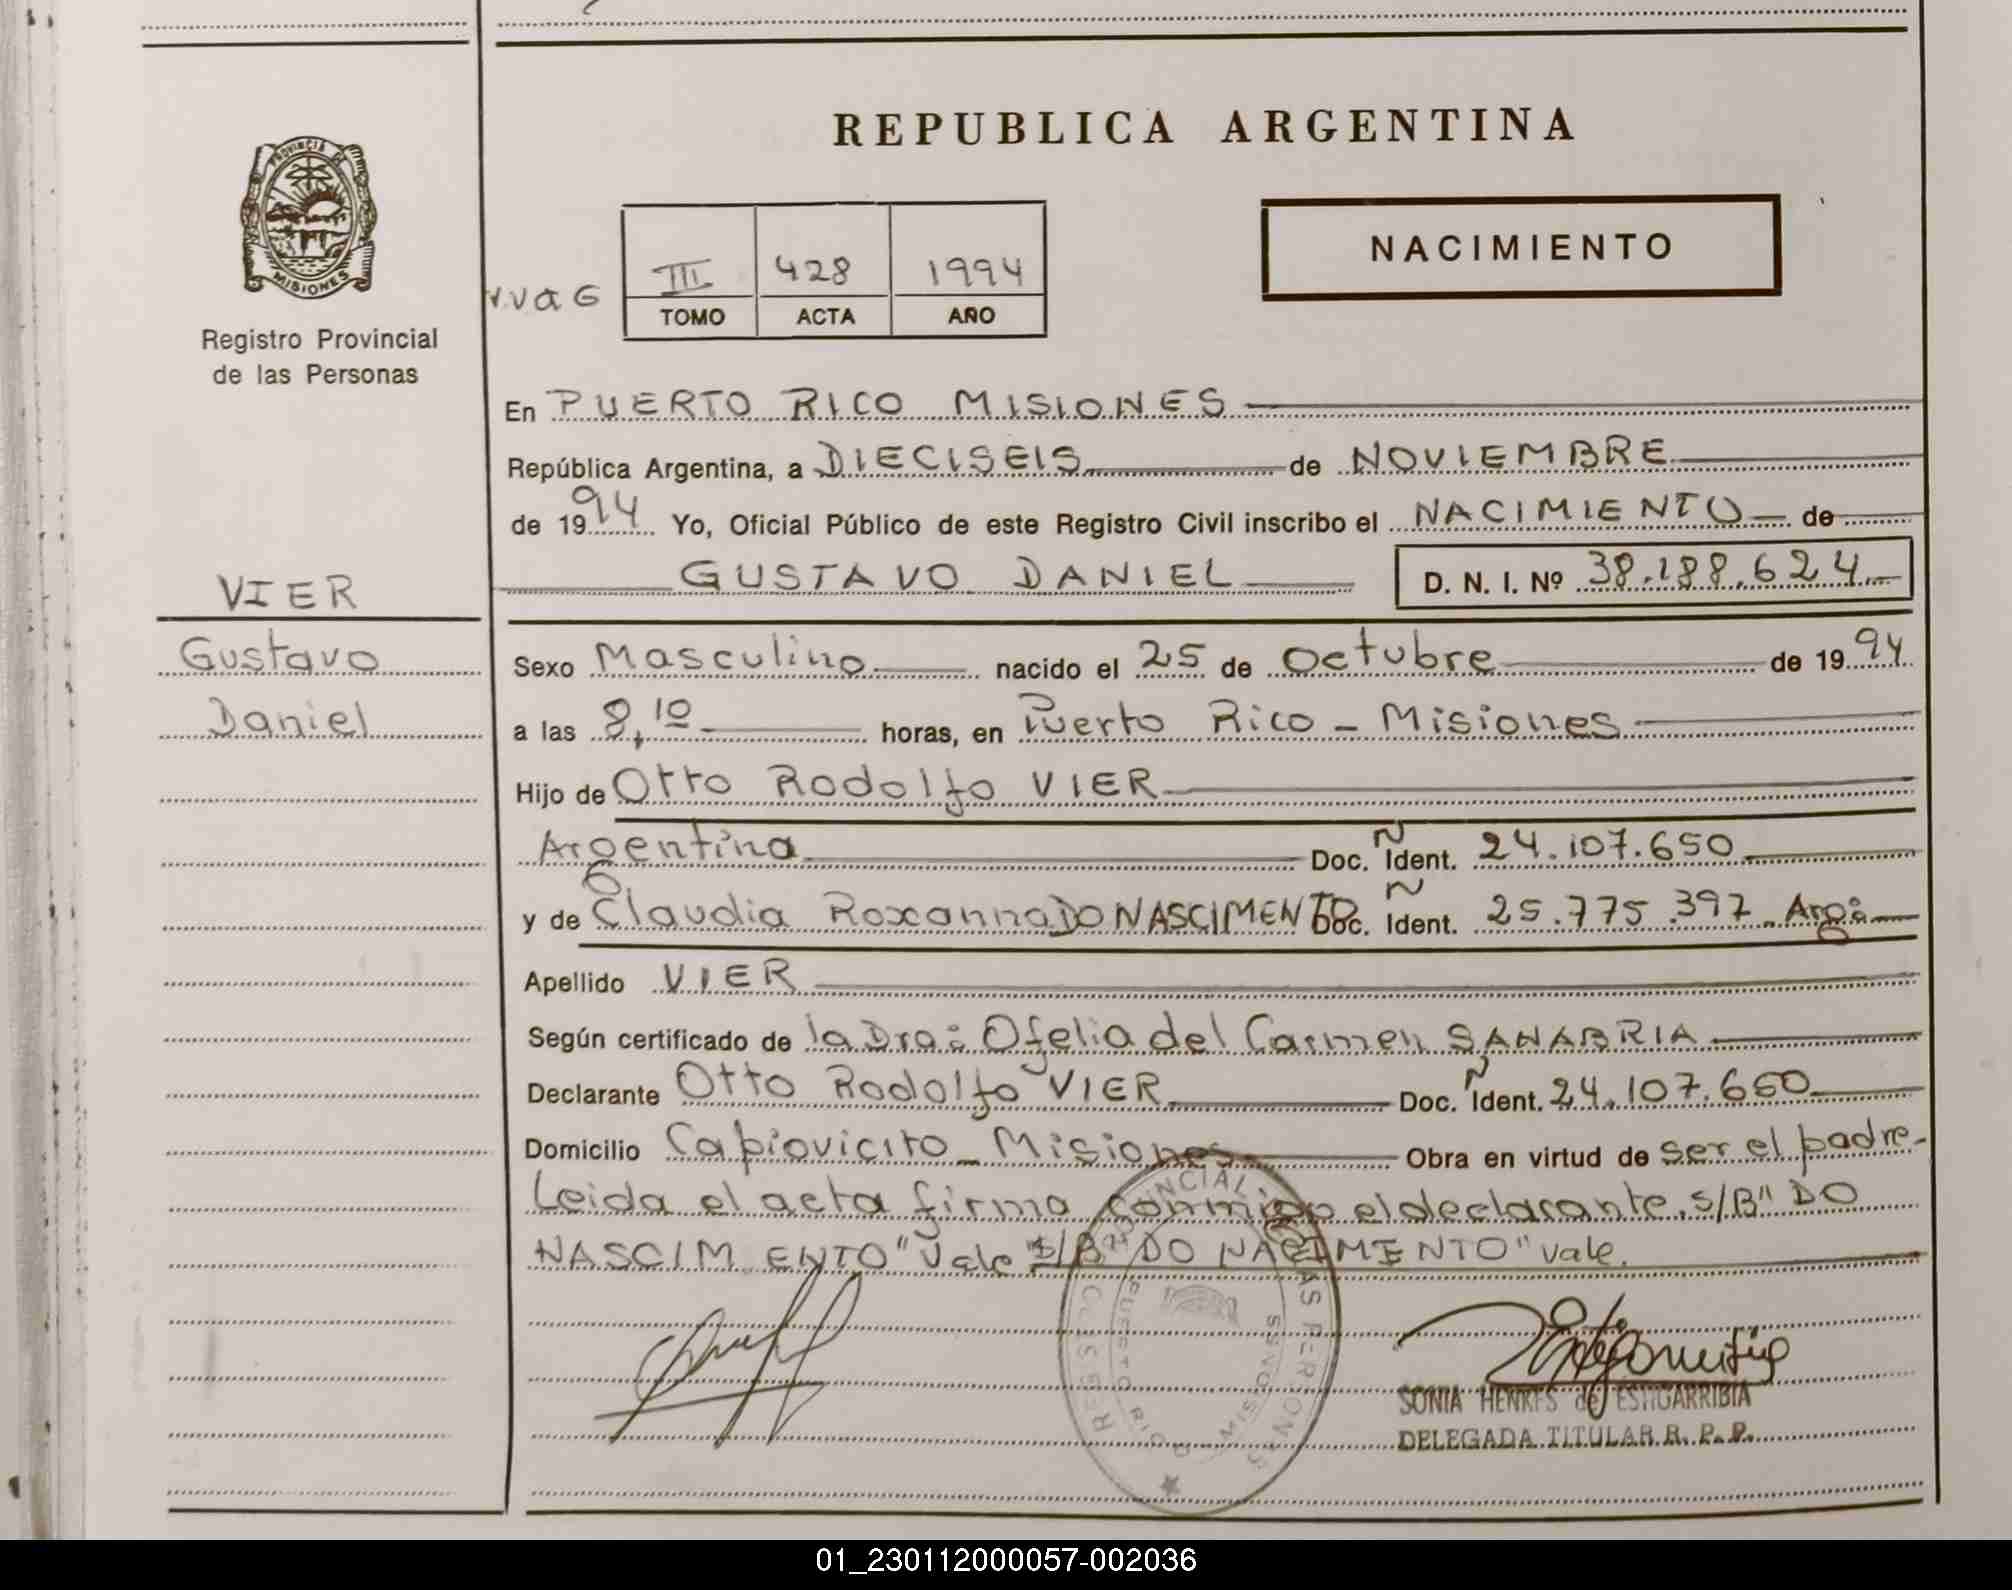 REPUBLICA ARGENTINA
PROVINCIA DE MISIONES
Registro Provincial
de las Personas
III 428 1994
TOMO ACTA AÑO
NACIMIENTO
En PUERTO RICO MISIONES
República Argentina, a DIECISEIS de NOVIEMBRE
de 1994 Yo, Oficial Público de este Registro Civil inscribo el NACIMIENTO de
GUSTAVO DANIEL D. N. I. Nº 38.188.624
VIER
Gustavo
Daniel
Sexo Masculino nacido el 25 de Octubre de 1994
a las 8,10 horas, en Puerto Rico - Misiones
Hijo de Otto Rodolfo VIER
Argentina Doc. Ñ Ident. 24.107.650
y de Claudia Roxanna DO NASCIMENTO Doc. Ñ Ident. 25.775.397 Arg:
Apellido VIER
Según certificado de la Dra: Ofelia del Carmen SANABRIA
Declarante Otto Rodolfo VIER Doc. Ñ Ident. 24.107.650
Domicilio Capiovicito - Misiones Obra en virtud de ser el padre.
Leida el acta firma conmigo el declarante. S/B" DO
NASCIMENTO" Vale S/B" DO NACIMENTO" vale.
PUERTO RICO MISIONES
SONIA HENKES de ESTIGARRIBIA
DELEGADA TITULAR R. P. P.
01_230112000057-002036